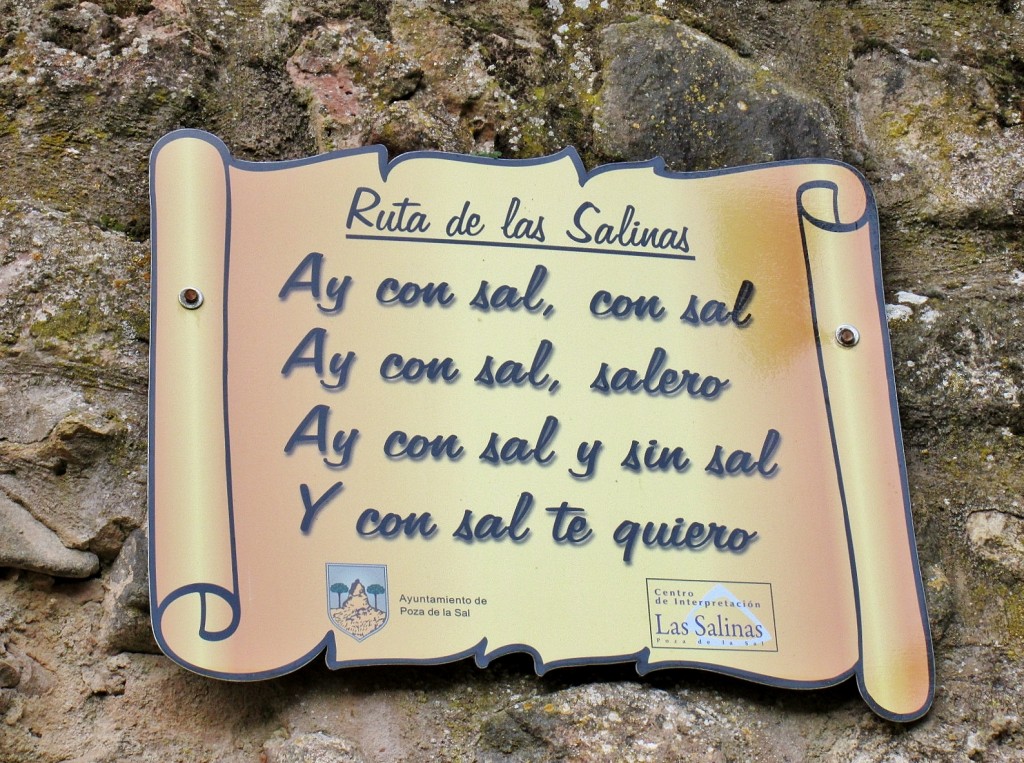 Ruta de las Salinas
Ay con sal, con sal
Ay con sal, salero
Ay con sal y sin sal
Y con sal te quiero
Ayuntamiento de
Poza de la Sal
Centro
de Interpretación
Las Salinas
Poza de la Sal